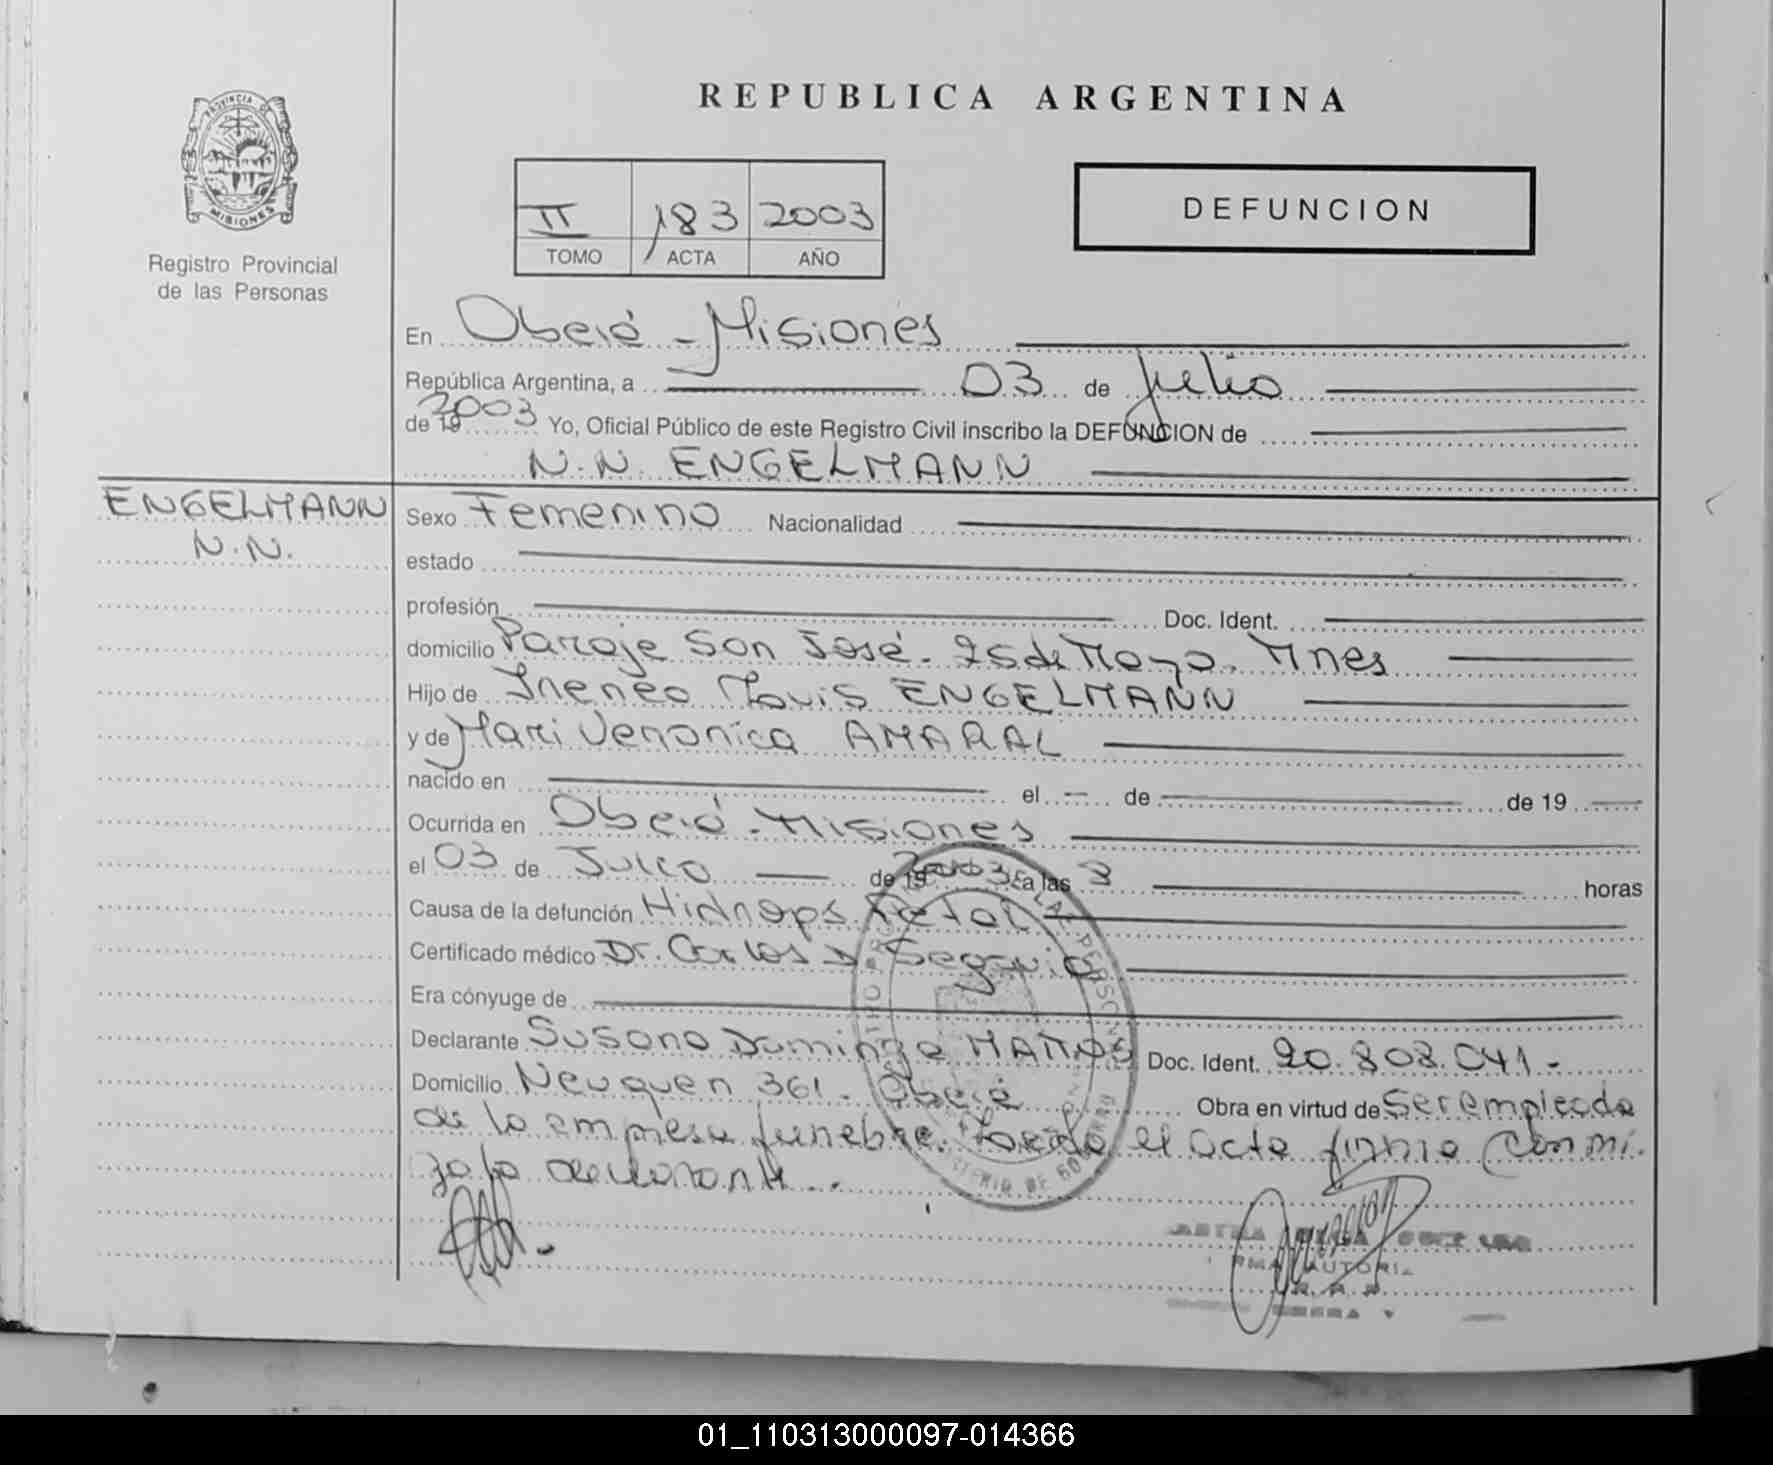 REPUBLICA ARGENTINA
PROVINCIA DE
MISIONES
Registro Provincial
de las Personas
II 183 2003
TOMO ACTA AÑO
DEFUNCION
En Oberá - Misiones
República Argentina, a 03 de Julio
de 19 2003 Yo, Oficial Público de este Registro Civil inscribo la DEFUNCION de
N.N. ENGELMANN
ENGELMANN
N.N.
Sexo Femenino Nacionalidad
estado
profesión Doc. Ident.
domicilio Paraje San José. 25 de Mayo. Mnes
Hijo de Ireneo ENGELMANN
y de Mari Veronica AMARAL
nacido en el - de de 19
Ocurrida en Oberá - Misiones
el 03 de Julio de 19 2003 a las 8 horas
Causa de la defunción Hidrops Fetal
Certificado médico Dr. Carlos D Segovia
Era cónyuge de
Declarante Susana Dominga MATTOS Doc. Ident. 20.808.041.-
Domicilio Neuquen 361. Oberá Obra en virtud de ser empleada
de la empresa funebre. el acta firma con mi.
go la declarante..
01_110313000097-014366